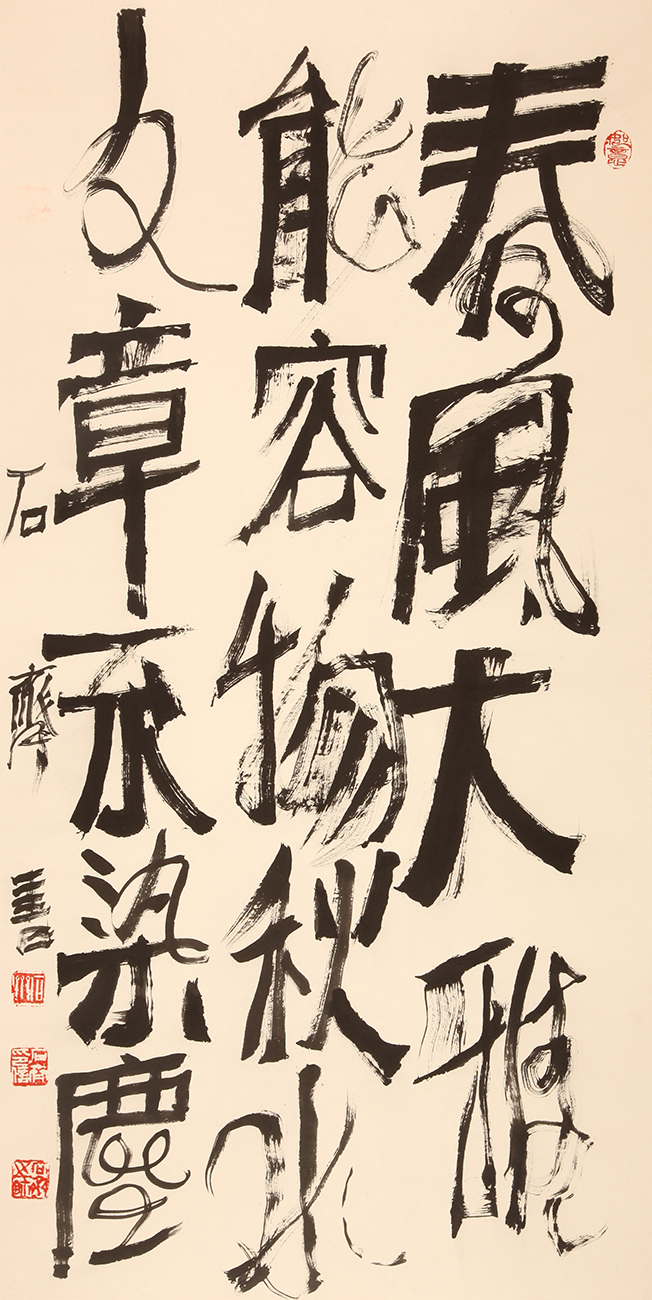 春風大雅
能容物秋水
文章不染塵
石齋書